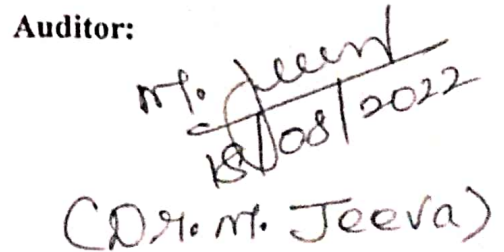 Auditor:
M. Jeeva
18/08/2022
(Dr. M. Jeeva)